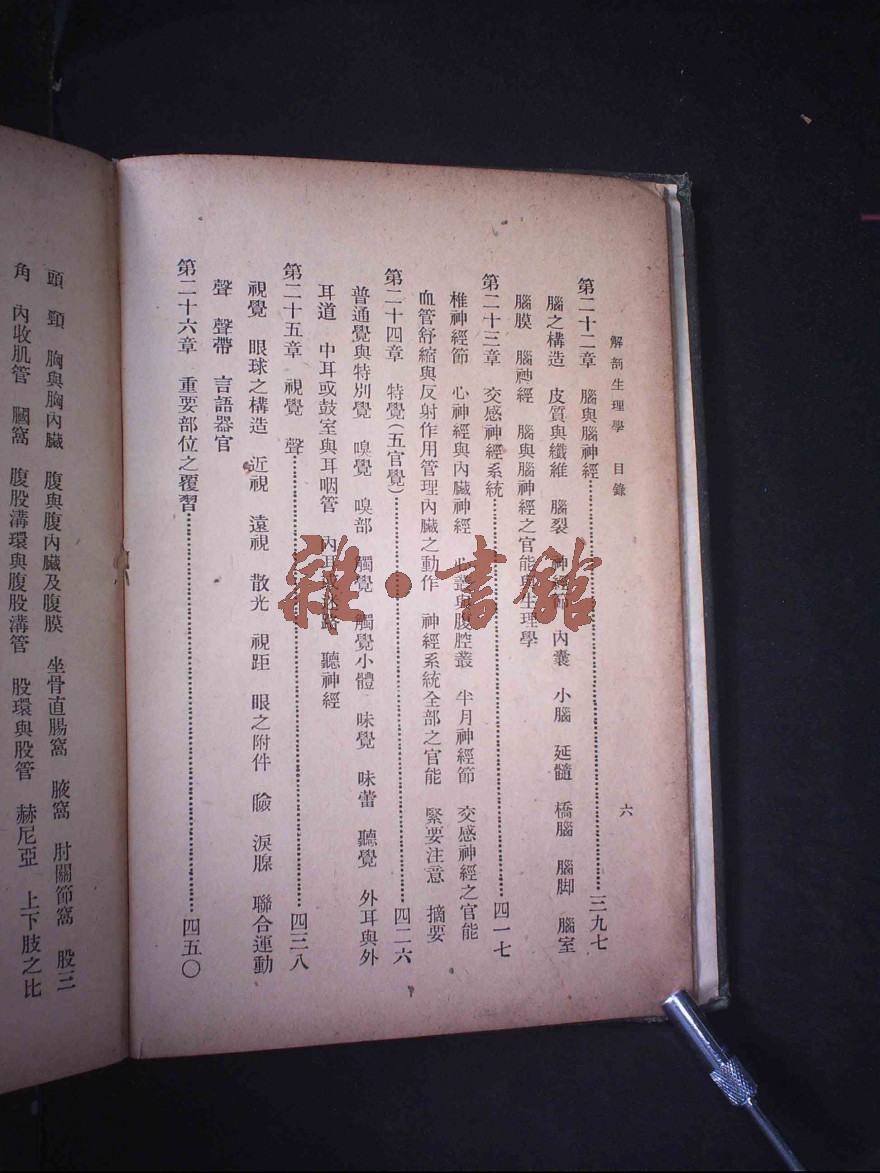 解剖生理學　目錄
六
第二十二章　腦與腦神經……三九七
腦之構造　皮質與纖維　腦裂　神經節　內囊　小腦　延髓　橋腦　腦脚　腦室
腦膜　腦神經　腦與腦神經之官能與生理學
第二十三章　交感神經系統……四一七
椎神經節　心神經與內臟神經　心叢與腹腔叢　半月神經節　交感神經之官能
血管舒縮與反射作用管理內臟之動作　神經系統全部之官能　緊要注意　摘要
第二十四章　特覺(五官覺)……四二六
普通覺與特別覺　嗅覺　嗅部　觸覺　觸覺小體　味覺　味蕾　聽覺　外耳與外
耳道　中耳或鼓室與耳咽管　內耳或迷路　聽神經
第二十五章　視覺　聲……四三八
視覺　眼球之構造　近視　遠視　散光　視距　眼之附件　瞼　淚腺　聯合運動
聲　聲帶　言語器官
第二十六章　重要部位之覆習……四五〇
頭　頸　胸與胸內臟　腹與腹內臟及腹膜　坐骨直腸窩　腋窩　肘關節窩　股三
角　內收肌管　膕窩　腹股溝環與腹股溝管　股環與股管　赫尼亞　上下肢之比
雜·書館